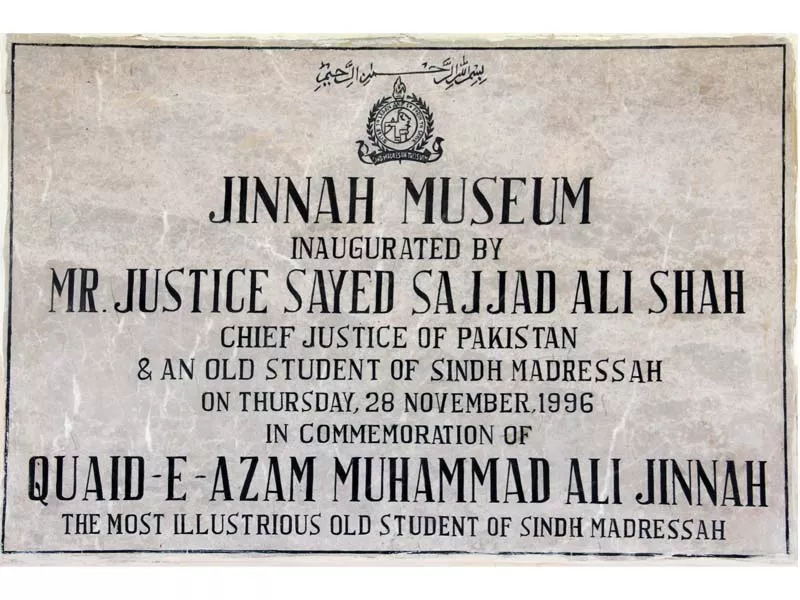 بسم الله الرحمن الرحيم
JINNAH MUSEUM
INAUGURATED BY
MR. JUSTICE SAYED SAJJAD ALI SHAH
CHIEF JUSTICE OF PAKISTAN
& AN OLD STUDENT OF SINDH MADRESSAH
ON THURSDAY, 28 NOVEMBER, 1996
IN COMMEMORATION OF
QUAID-E-AZAM MUHAMMAD ALI JINNAH
THE MOST ILLUSTRIOUS OLD STUDENT OF SINDH MADRESSAH